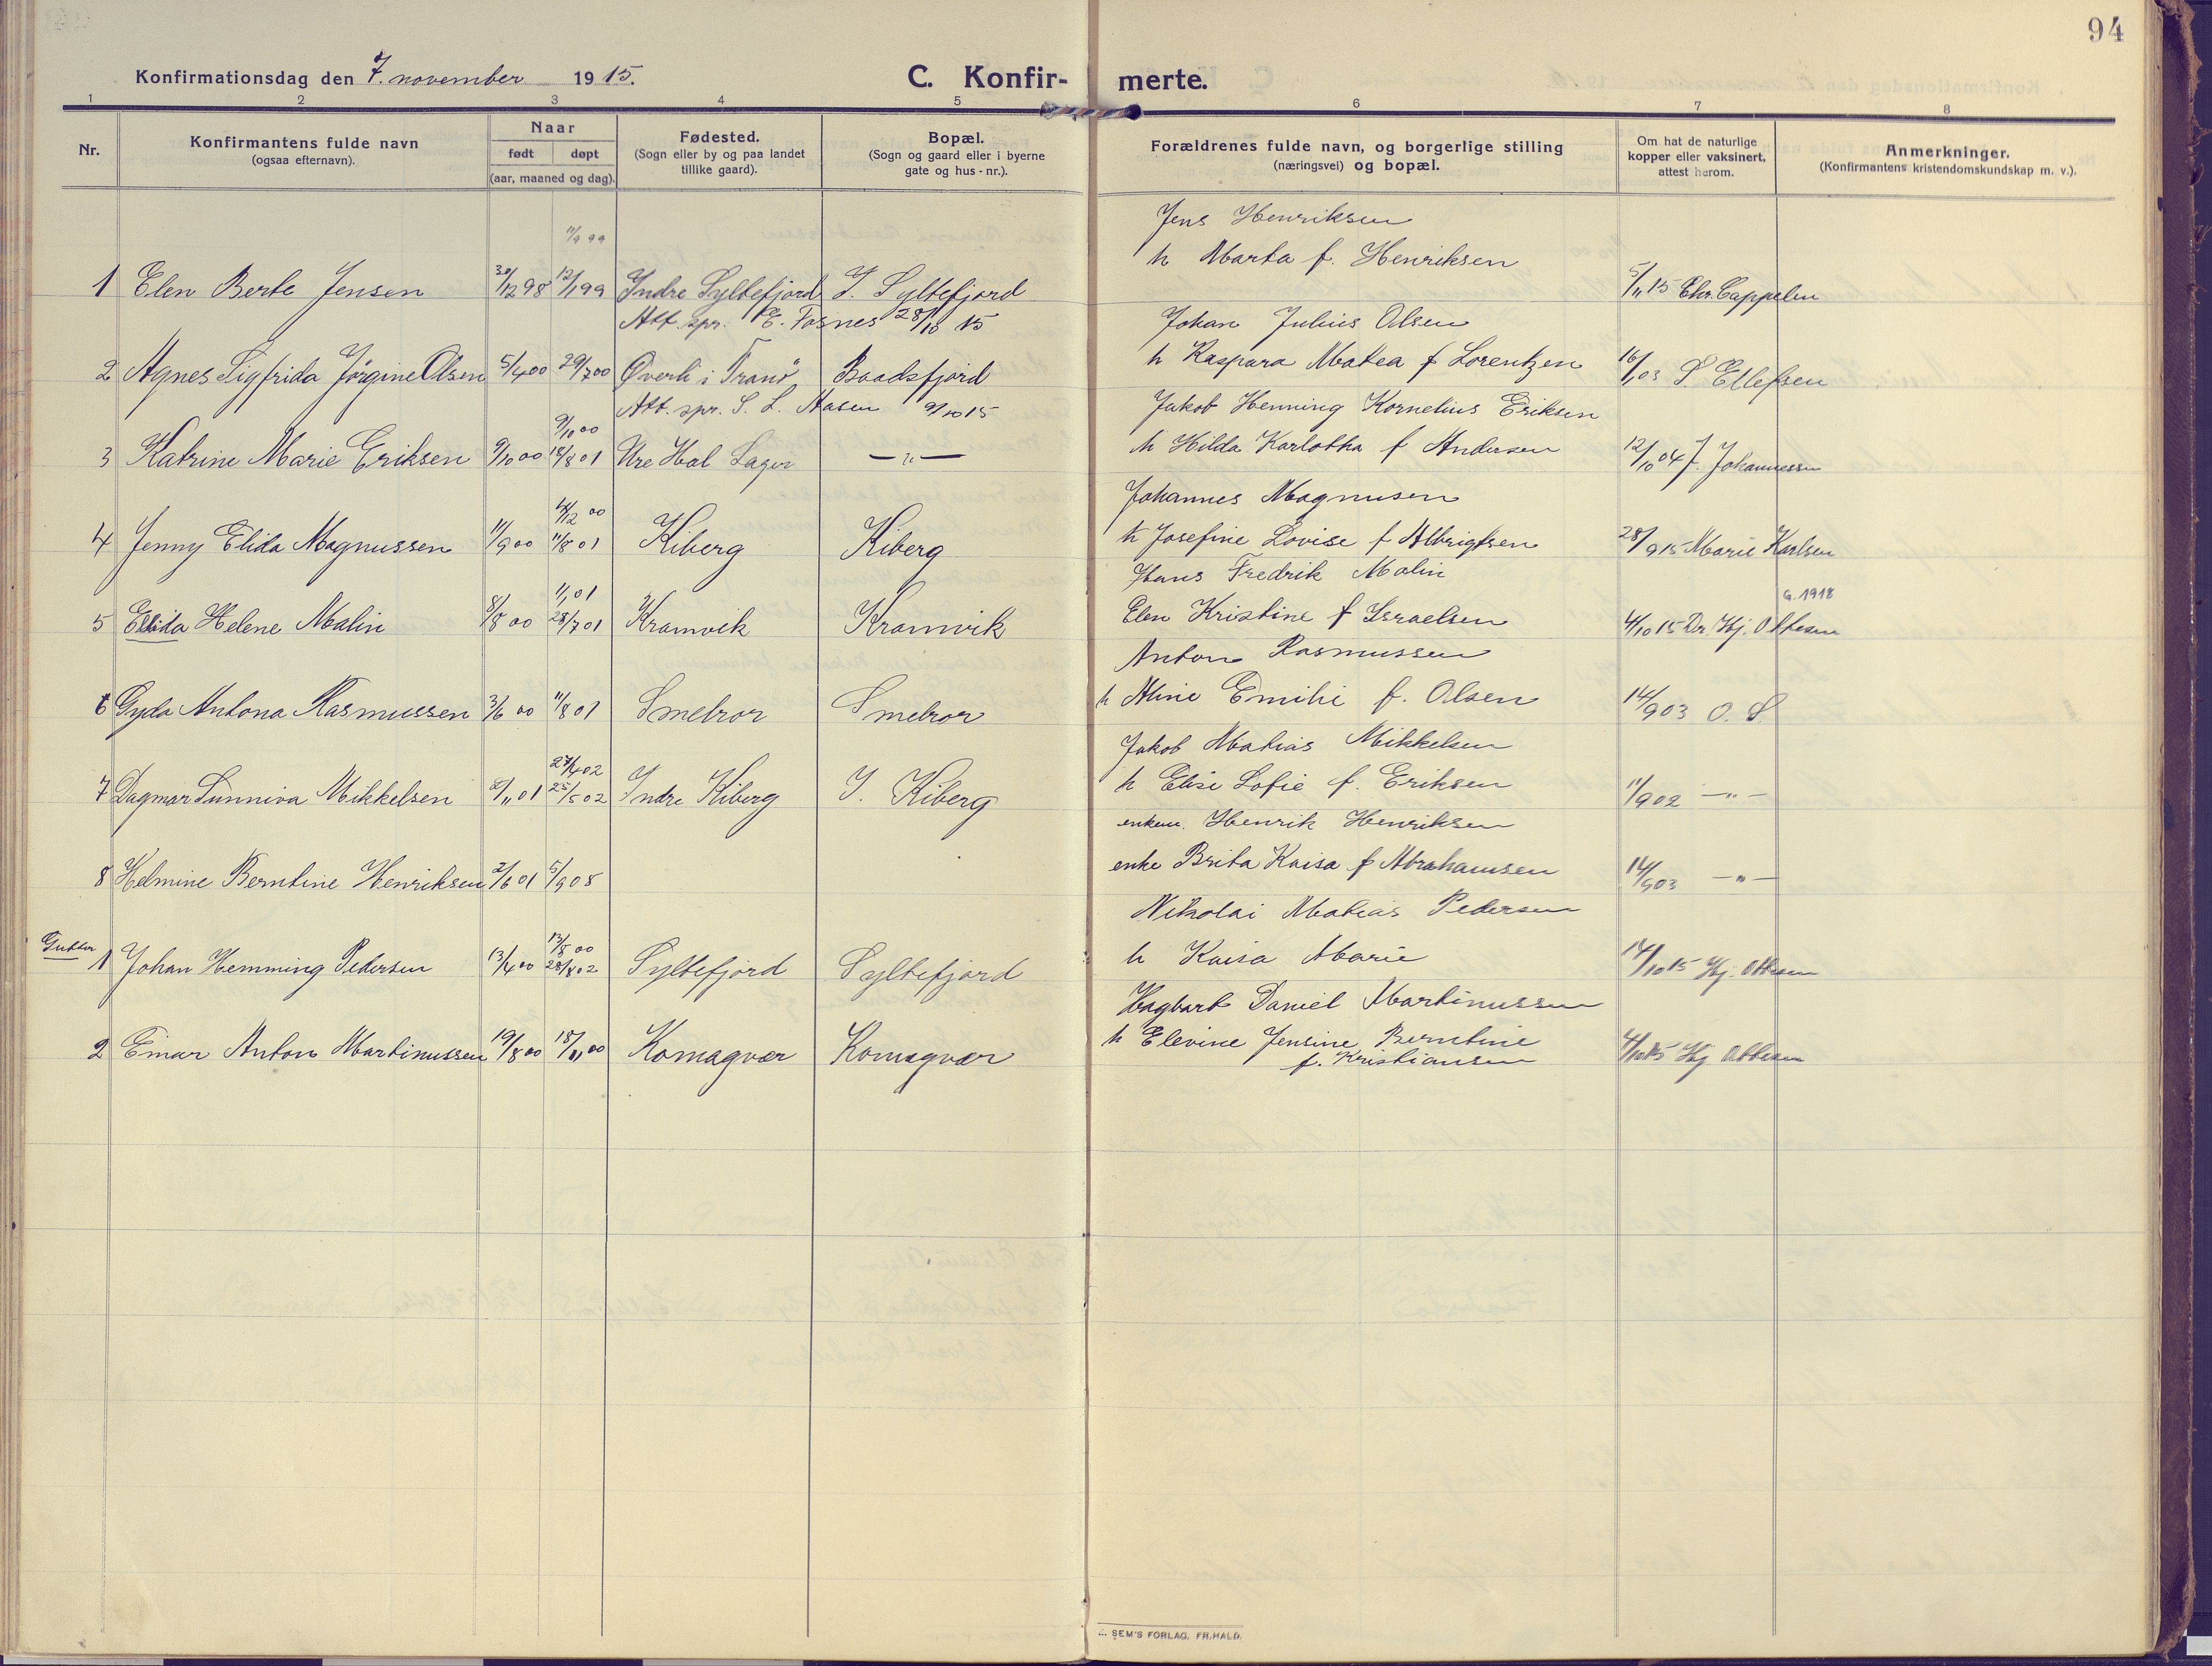 94
Konfirmationsdag den 7. november 1915.
C. Konfir- merte.
1 2 3 4 5 6 7 8
Nr.
Konfirmantens fulde navn
(ogsaa efternavn).
Naar
født døpt
(aar, maaned og dag).
Fødested.
(Sogn eller by og paa landet
tillike gaard).
Bopæl.
(Sogn og gaard eller i byerne
gate og hus-nr.).
Forældrenes fulde navn, og borgerlige stilling
(næringsvei) og bopæl.
Om hat de naturlige
kopper eller vaksinert,
attest herom.
Anmerkninger.
(Konfirmantens kristendomskundskap m. v.).
Jens Henriksen
11/9 99
h Marta f. Henriksen
1 Elen Berte Jensen 30/12 98 12/1 99 Indre Syltefjord I. Syltefjord 5/11 15 Chr. Cappelen
Att. spr. E. Fosnes 28/10 15
Johan Julius Olsen
h Kaspara Matea f Lorentzen
2 Agnes Sigfrida Jørgine Olsen 5/4 00 29/7 00 Øverli i Tranö Baadsfjord 16/1 03 S. Ellefsen
Att. spr. S. L. Aasen 9/10 15
Jakob Henning Kornelius Eriksen
9/10 00
h Hilda Karlotha f Andersen
3 Katrine Marie Eriksen 9/10 00 18/8 01 Ure Hol Sogn —"— 12/10 04 J. Johannessen
Johannes Magnusen
4/12 00
h Josefine Lovise f Albrigtsen
4 Jenny Elida Magnussen 11/9 00 11/8 01 Kiberg Kiberg 28/9 15 Marie Karlsen
Hans Fredrik Malin
1/1 01
G. 1918
Elen Kristine f Israelsen
5 Elida Helene Malin 8/8 00 28/7 01 Kramvik Kramvik 4/10 15 Dr. Hj. Ottesen
Anton Rasmussen
h Aline Emilie f. Olsen
6 Gyda Antona Rasmussen 3/6 00 11/8 01 Smelror Smelror 14/9 03 O. S.
Jakob Matias Mikkelsen
27/4 02
h Elise Sofie f. Eriksen
7 Dagmar Sunniva Mikkelsen 2/11 01 25/5 02 Indre Kiberg I. Kiberg 11/9 02 —"—
enkem. Henrik Henriksen
enke Brita Kaisa f Abrahamsen
8 Helmine Berntine Henriksen 2/6 01 5/9 08 14/9 03 —"—
Nikolai Matias Pedersen
Gutter
13/5 00
h Kaisa Marie
1 Johan Hemming Pedersen 13/4 00 28/8 02 Syltefjord Syltefjord 14/10 15 Hj. Ottesen
Hagbart Daniel Martinussen
h Elevine Jensine Berntine
2 Einar Anton Martinussen 19/8 00 18/11 00 Komagvær Komagvær 4/10 15 Hj Ottesen
f. Kristiansen
SEM'S FORLAG, FR.HALD.